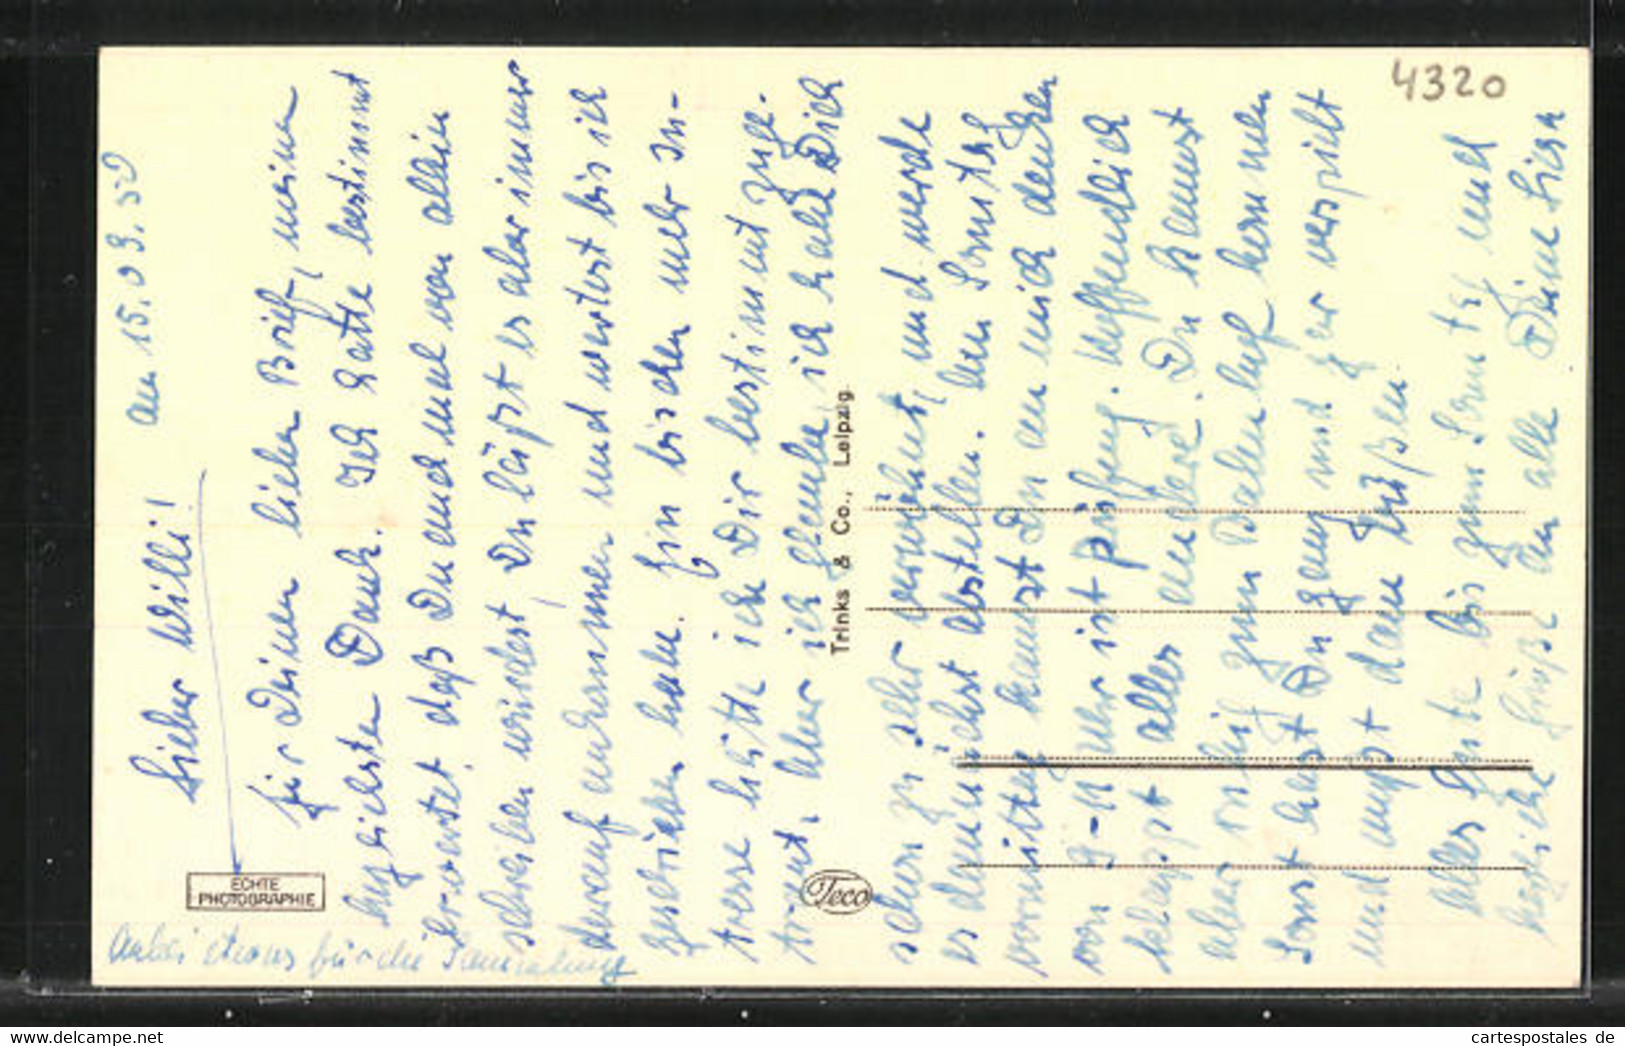 am 15.03.50
Lieber Willi!
für Deinen lieben Brief, meinen
herzlichsten Dank. Ich hatte bestimmt
erwartet, daß Du auch mal von allein
schreiben würdest, Du läßt es aber immer
darauf ankommen und wartest bis ich
geschrieben habe. Ein bischen mehr In-
teresse hätte ich Dir bestimmt zuge-
traut. Aber ich glaube, ich habe Dich
schon zu sehr verwöhnt, und werde
es demnächst abstellen. Am Sonntag
vormittag kannst Du an mich denken
von 9-11 Uhr ist Prüfung. Hoffendlich
klappt alles. Du kannst
aber ruhig zum Bahnhof kommen
Sonst hast Du ganz und gar verspielt
und mußt dann büßen.
Alles Gute bis zum Sonntag und
herzliche Grüße an alle Deine
Anbei etwas für die Sammlung
4320
ECHTE
PHOTOGRAPHIE
Trinks & Co., Leipzig.
Teco
cartespostales de